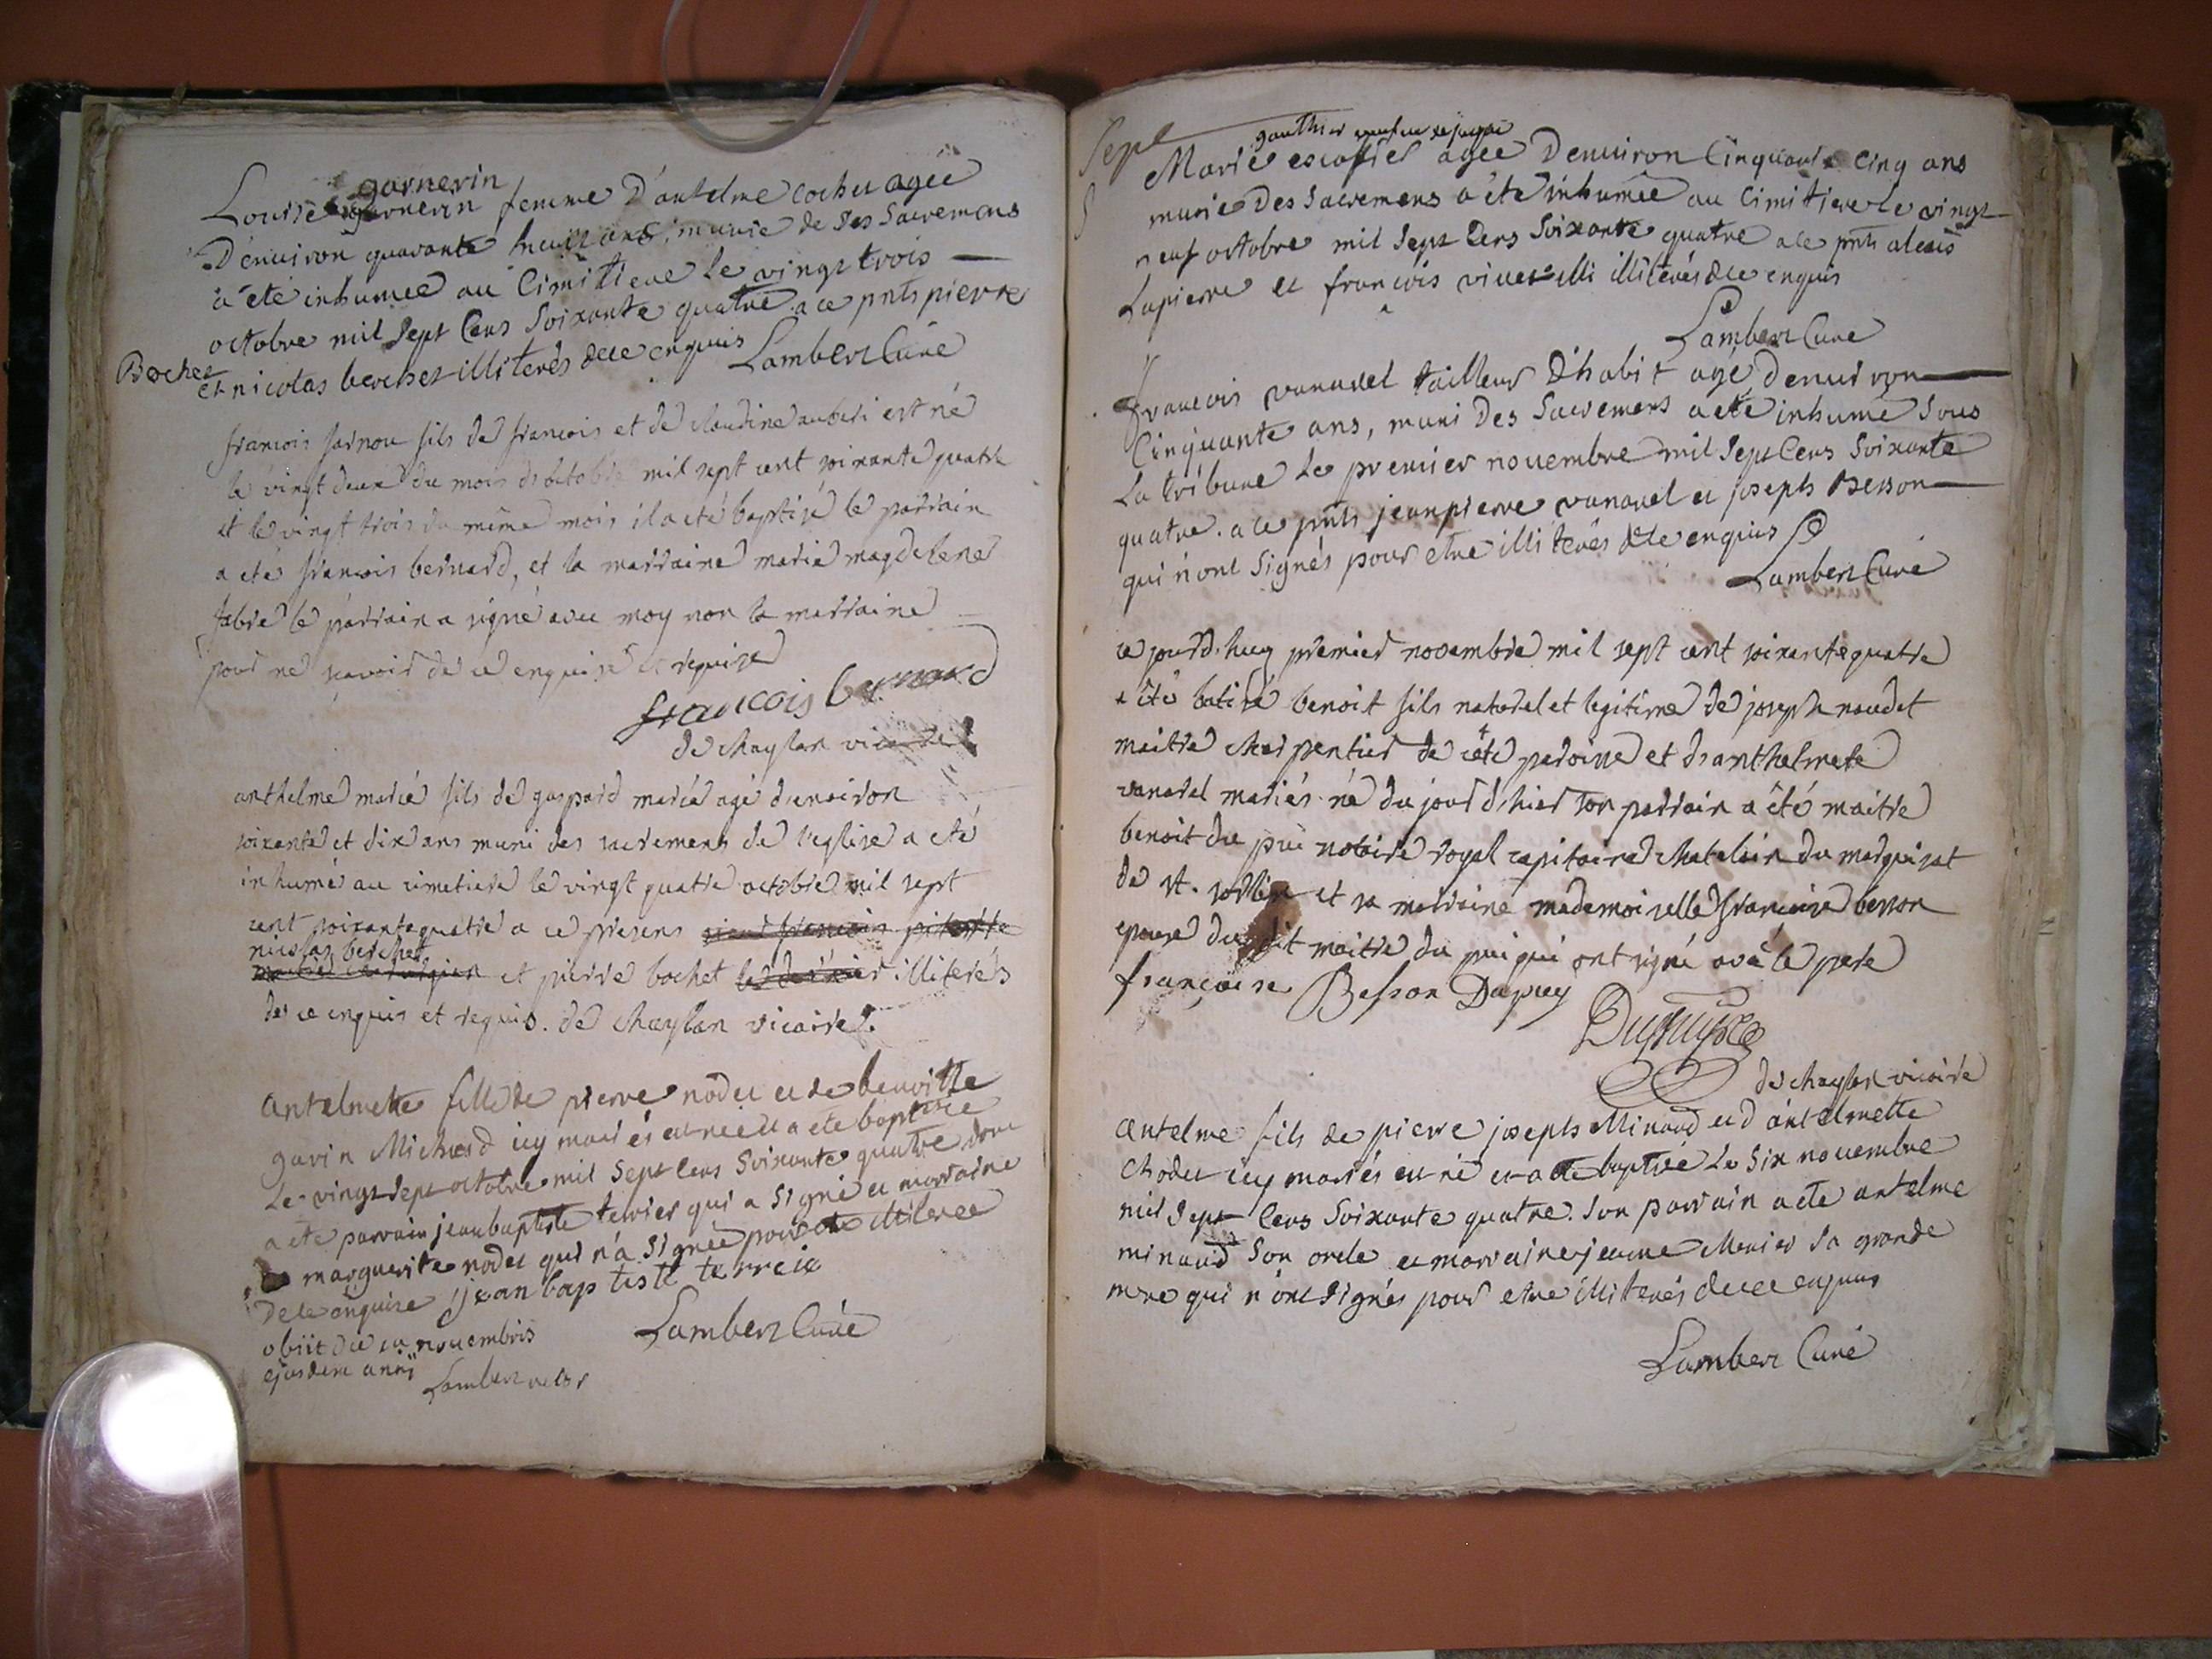 garnerin
Louise garnerin femme D'antelme cochet agée
D'enuiron quarante huit ans, munie de ses Sacremens
a été inhumée au Cimitiere le vingt trois
octobre mil Sept Cens Soixante quatre. a ce pnts pierre
Bochet
et nicolas berchet illiterés de ce enquis Lambert Curé
francois farnou fils de francois et de claudine auberi est né
le vingt deux du mois d'octobre mil sept cent soixante quatre
et le vingt trois du même mois il a eté baptisé le parrain
a eté francois bernard, et la marraine marie magdelene
fabre le parrain a signé avec moy non la marraine
pour ne sçavoir de ce enquise et requise
francois bernard
de chaylan vicaire
anthelme marié fils de gaspard marié agé d'enuiron
soixante et dix ans muni des sacremens de l'eglise a eté
inhumé au cimetiere le vingt quatre octobre mil sept
cent soixante quatre a ce presens sieur francois
nicolas berchet
maitre chirurgien et pierre bochet le dernier illiterés
de ce enquis et requis. de chaylan vicaire
Antelmette fille de pierre nodet et de benoitte
gavin Michard icy mariés est née et a eté baptisée
Le vingt sept octobre mil Sept Cens Soixante quatre dont
a eté parrain jean baptiste terrier qui a Signé et marraine
marguerite nodet qui n'a Signée pour etre illiteree
de ce enquise jean baptiste terreie
obiit die novembris Lambert Curé
ejusdem anni Lambert rector
Sept
gauthier
Marie escoffier agée Denuiron Cinquante Cinq ans
munie Des Sacremens a été inhumée au Cimitiere Le vingt
neuf octobre mil Sept Cens Soixante quatre a ce pnts alexis
Lapierre et francois viuer illi illiterés de ce enquis
Lambert Curé
francois vanarel tailleur D'habit agé denuiron
Cinquante ans, muni Des Sacremens a eté inhumé Sous
La tribune Le premier nouembre mil Sept Cens Soixante
quatre. a ce pnts jean pierre vanarel et joseph Besson
qui n'ont Signés pour etre illiterés de ce enquis
Lambert Curé
ce jourd'huy premier novembre mil sept cent soixante quatre
a été batisé benoit fils naturel et legitime de joseph naudet
maitre charpentier de cete paroisse et d'anthelmete
vanarel mariés né du jour d'hier son parrain a été maitre
benoit du puì notaire royal capitaine chatelain du marquisat
de st. sorlin et sa marraine mademoiselle francoise besson
epouse du dit maitre du pui qui ont signé avec le pere
françoise Besson Dupuy
Dupuy
de chaylan vicaire
Antelme fils de pierre joseph Minaud et d'antelmette
Chodet icy mariés est né et a eté baptisé Le Six nouembre
mil Sept Cens Soixante quatre. Son parrain a eté antelme
minaud Son oncle et marraine jeanne Menier Sa grande
mere qui n'ont Signés pour etre illiterés de ce enquis
Lambert Curé